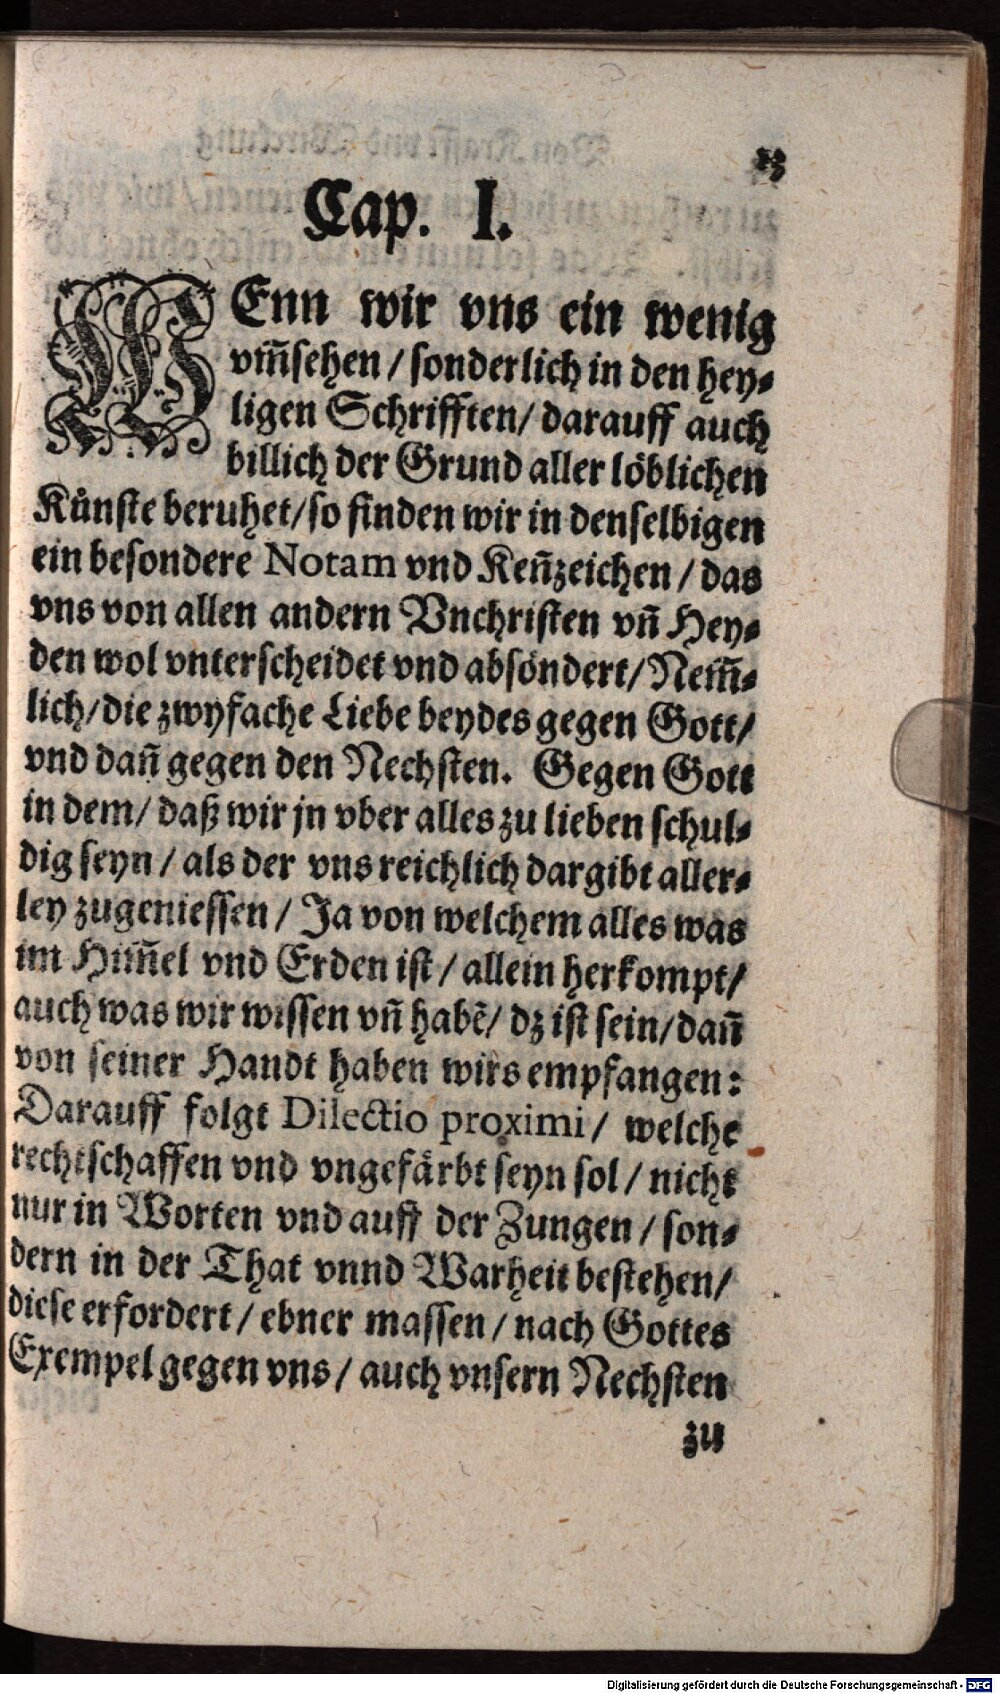 13
Cap. I.
WEnn wir vns ein wenig
vm̃sehen / sonderlich in den hey⸗
ligen Schrifften/ darauff auch
billich der Grund aller löblichen
Kuͤnste beruhet/so finden wir in denselbigen
ein besondere Notam vnd Ken̄zeichen / das
vns von allen andern Vnchristen vn̄ Hey⸗
den wol vnterscheidet vnd absöndert/ Nem̃⸗
lich/die zwyfache Liebe beydes gegen Gott/
vnd dan̄ gegen den Nechsten. Gegen Gott
in dem/ daß wir jn vber alles zu lieben schul⸗
dig seyn / als der vns reichlich dargibt aller⸗
ley zugeniessen / Ja von welchem alles was
im Him̄el vnd Erden ist / allein herkompt/
auch was wir wissen vn̄ habē/ dz ist sein/dan̄
von seiner Handt haben wirs empfangen:
Darauff folgt Dilectio proximi / welche
rechtschaffen vnd vngefaͤrbt seyn sol / nicht
nur in Worten vnd auff der Zungen / son⸗
dern in der That vnnd Warheit bestehen/
diese erfordert / ebner massen / nach Gottes
Exempel gegen vns / auch vnsern Nechsten
zu
Digitalisierung gefördert durch die Deutsche Forschungsgemeinschaft - DFG